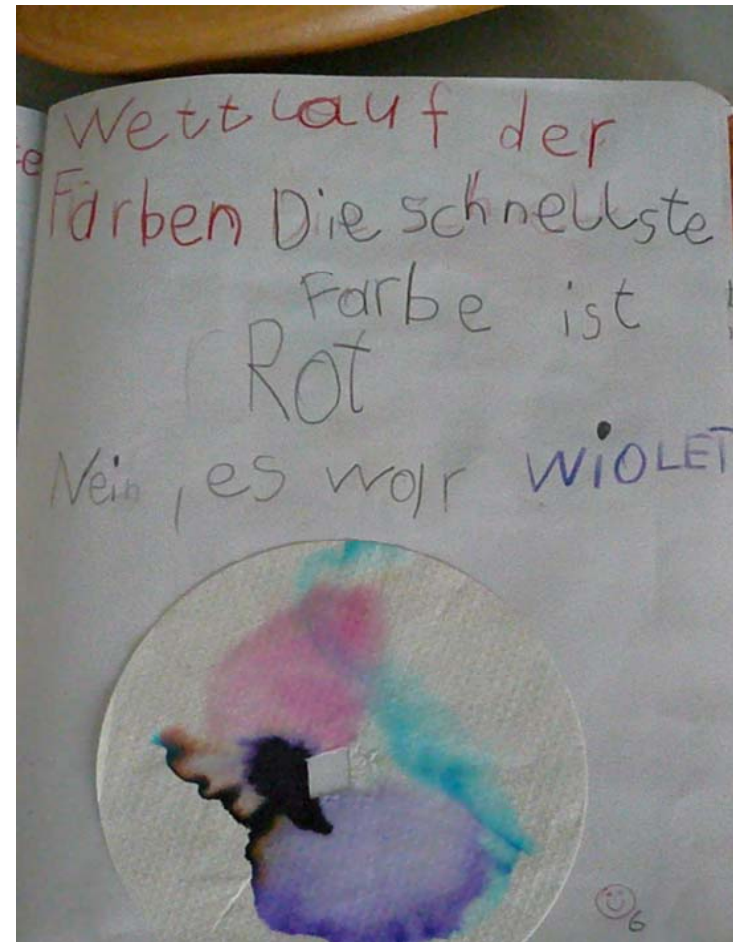 Wettlauf der
Farben Die schnellste
Farbe ist
Rot
Nein, es war WiOLET
6